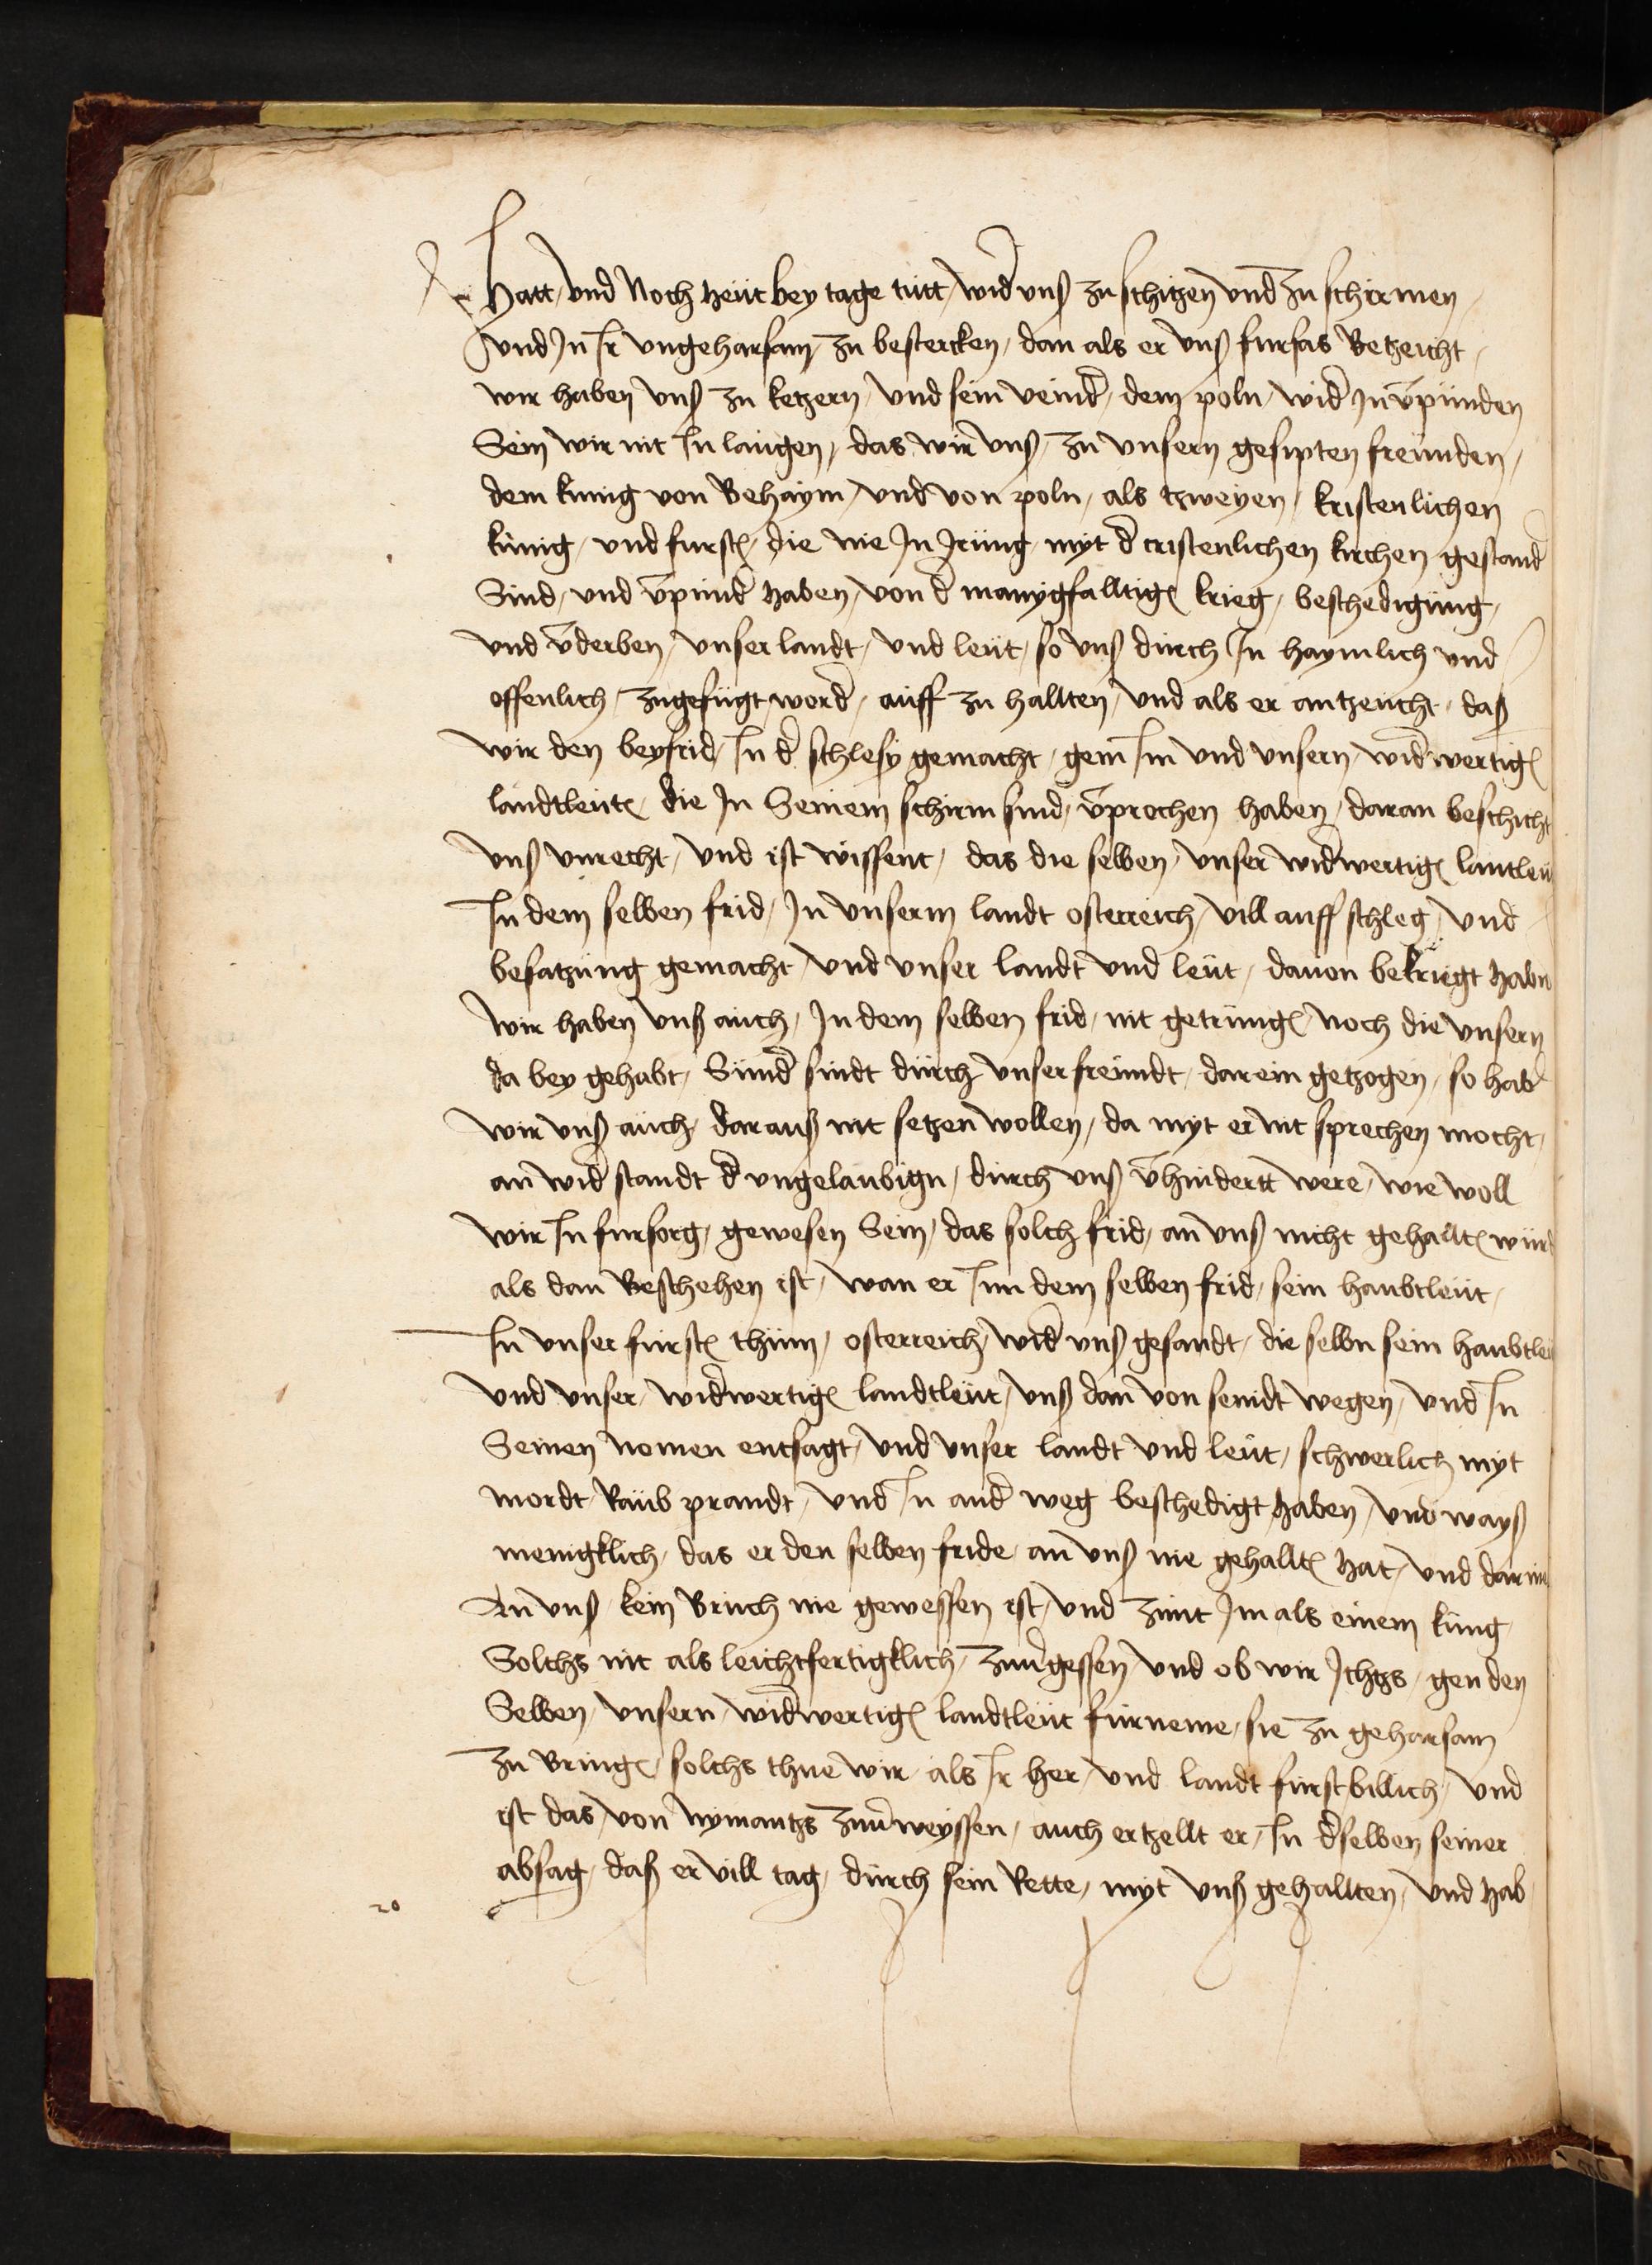 Hatt, vnd Noch heüt bey tage tütt, wid vnß zu schitzen vnd zu schirmen,
vnd Jn Ir vngeharsam, zu bestercken, dan als er vnß furbas Betzeicht,
wir haben vnß zu ketzern, vnd sein veind, dem poln, wid Jn v̄pünden
Sein wir nit In laugen, das wir vnß, zu vnsern gesipten freünden,
dem künig von Behaym, vnd von poln, als tzweyen, kristenlichen
künig, vnd furst, die nie Jn Jrüng, myt d cristenlichen kirchen gestand
Sind, vnd v̄pünd haben, von d manygfalltig krieg, beschedigüng,
vnd v̄derben, vnser landt, vnd leüt, so vnß dürch In haymlich vnd
offenlich, zugefügt word, aüff zu hallten, vnd als er antzeücht, daß
wir den beyfrid, In d schlesy gemacht, gein Im vnd vnsern, widwertig
landtleüt, die Jn Seinem schirm sind, v̄prochen haben, daran beschicht
vnß vnrecht, vnd ist wissent, das die selben, vnser widwertig lantleü
In dem selben frid, Jn vnserm landt osterreich, vill aüff schleg, vnd
besatzüng gemacht, vnd vnser landt vnd leüt, dauon bekriegt habn
wir haben vnß aüch, Jn dem selben frid, nit getrüng, Noch die vnsern
da bey gehabt, Sünd sindt dürch vnser freündt, darein getzogen, so hab
wir vnß aüch, daraüß nit setzen wollen, da myt er nit sprechen mocht,
an wid standt d vngelaubign, dürch vnß v̄hindertt were, wie woll
wir In fursorg, gewesen Sein, das solch frid, an vnß nicht gehallt würd
als dan Beschehen ist, wan er Inn dem selben frid, sein haubtleüt,
In vnser furst thüm, osterreich, wid vnß gesandt, die selbn sein haubtleü
vnd vnser, widwertig landtleüt, vnß dan von seindt wegen, vnd In
Seinen Nomen entsagt, vnd vnser landt vnd leüt, schwerlich myt
mordt, Raüb prandt, vnd In and weg beschedigt haben, vnd wayß
menigklich, das er den selben fride, an vnß nie gehallt hat, vnd darin
An vnß, kein Brüch nie gewessen ist, vnd zimt Jm als einem küng
Solchs nit als leichtfertigklich, zuv̄gessen, vnd ob wir Jchtzs, gen den
Selben, vnsern, widwertig landtleüt fürneme, sie zu geharsam
zu Bring, solchs thüe wir, als Ir her, vnd landt fürst, billich, vnd
ist das, von Nymantzs zuv̄weyssen, auch ertzellt er, In dselben seiner
absag, daß er vill tag, dürch sein Rette, myt vnß gehallten, vnd hab
20